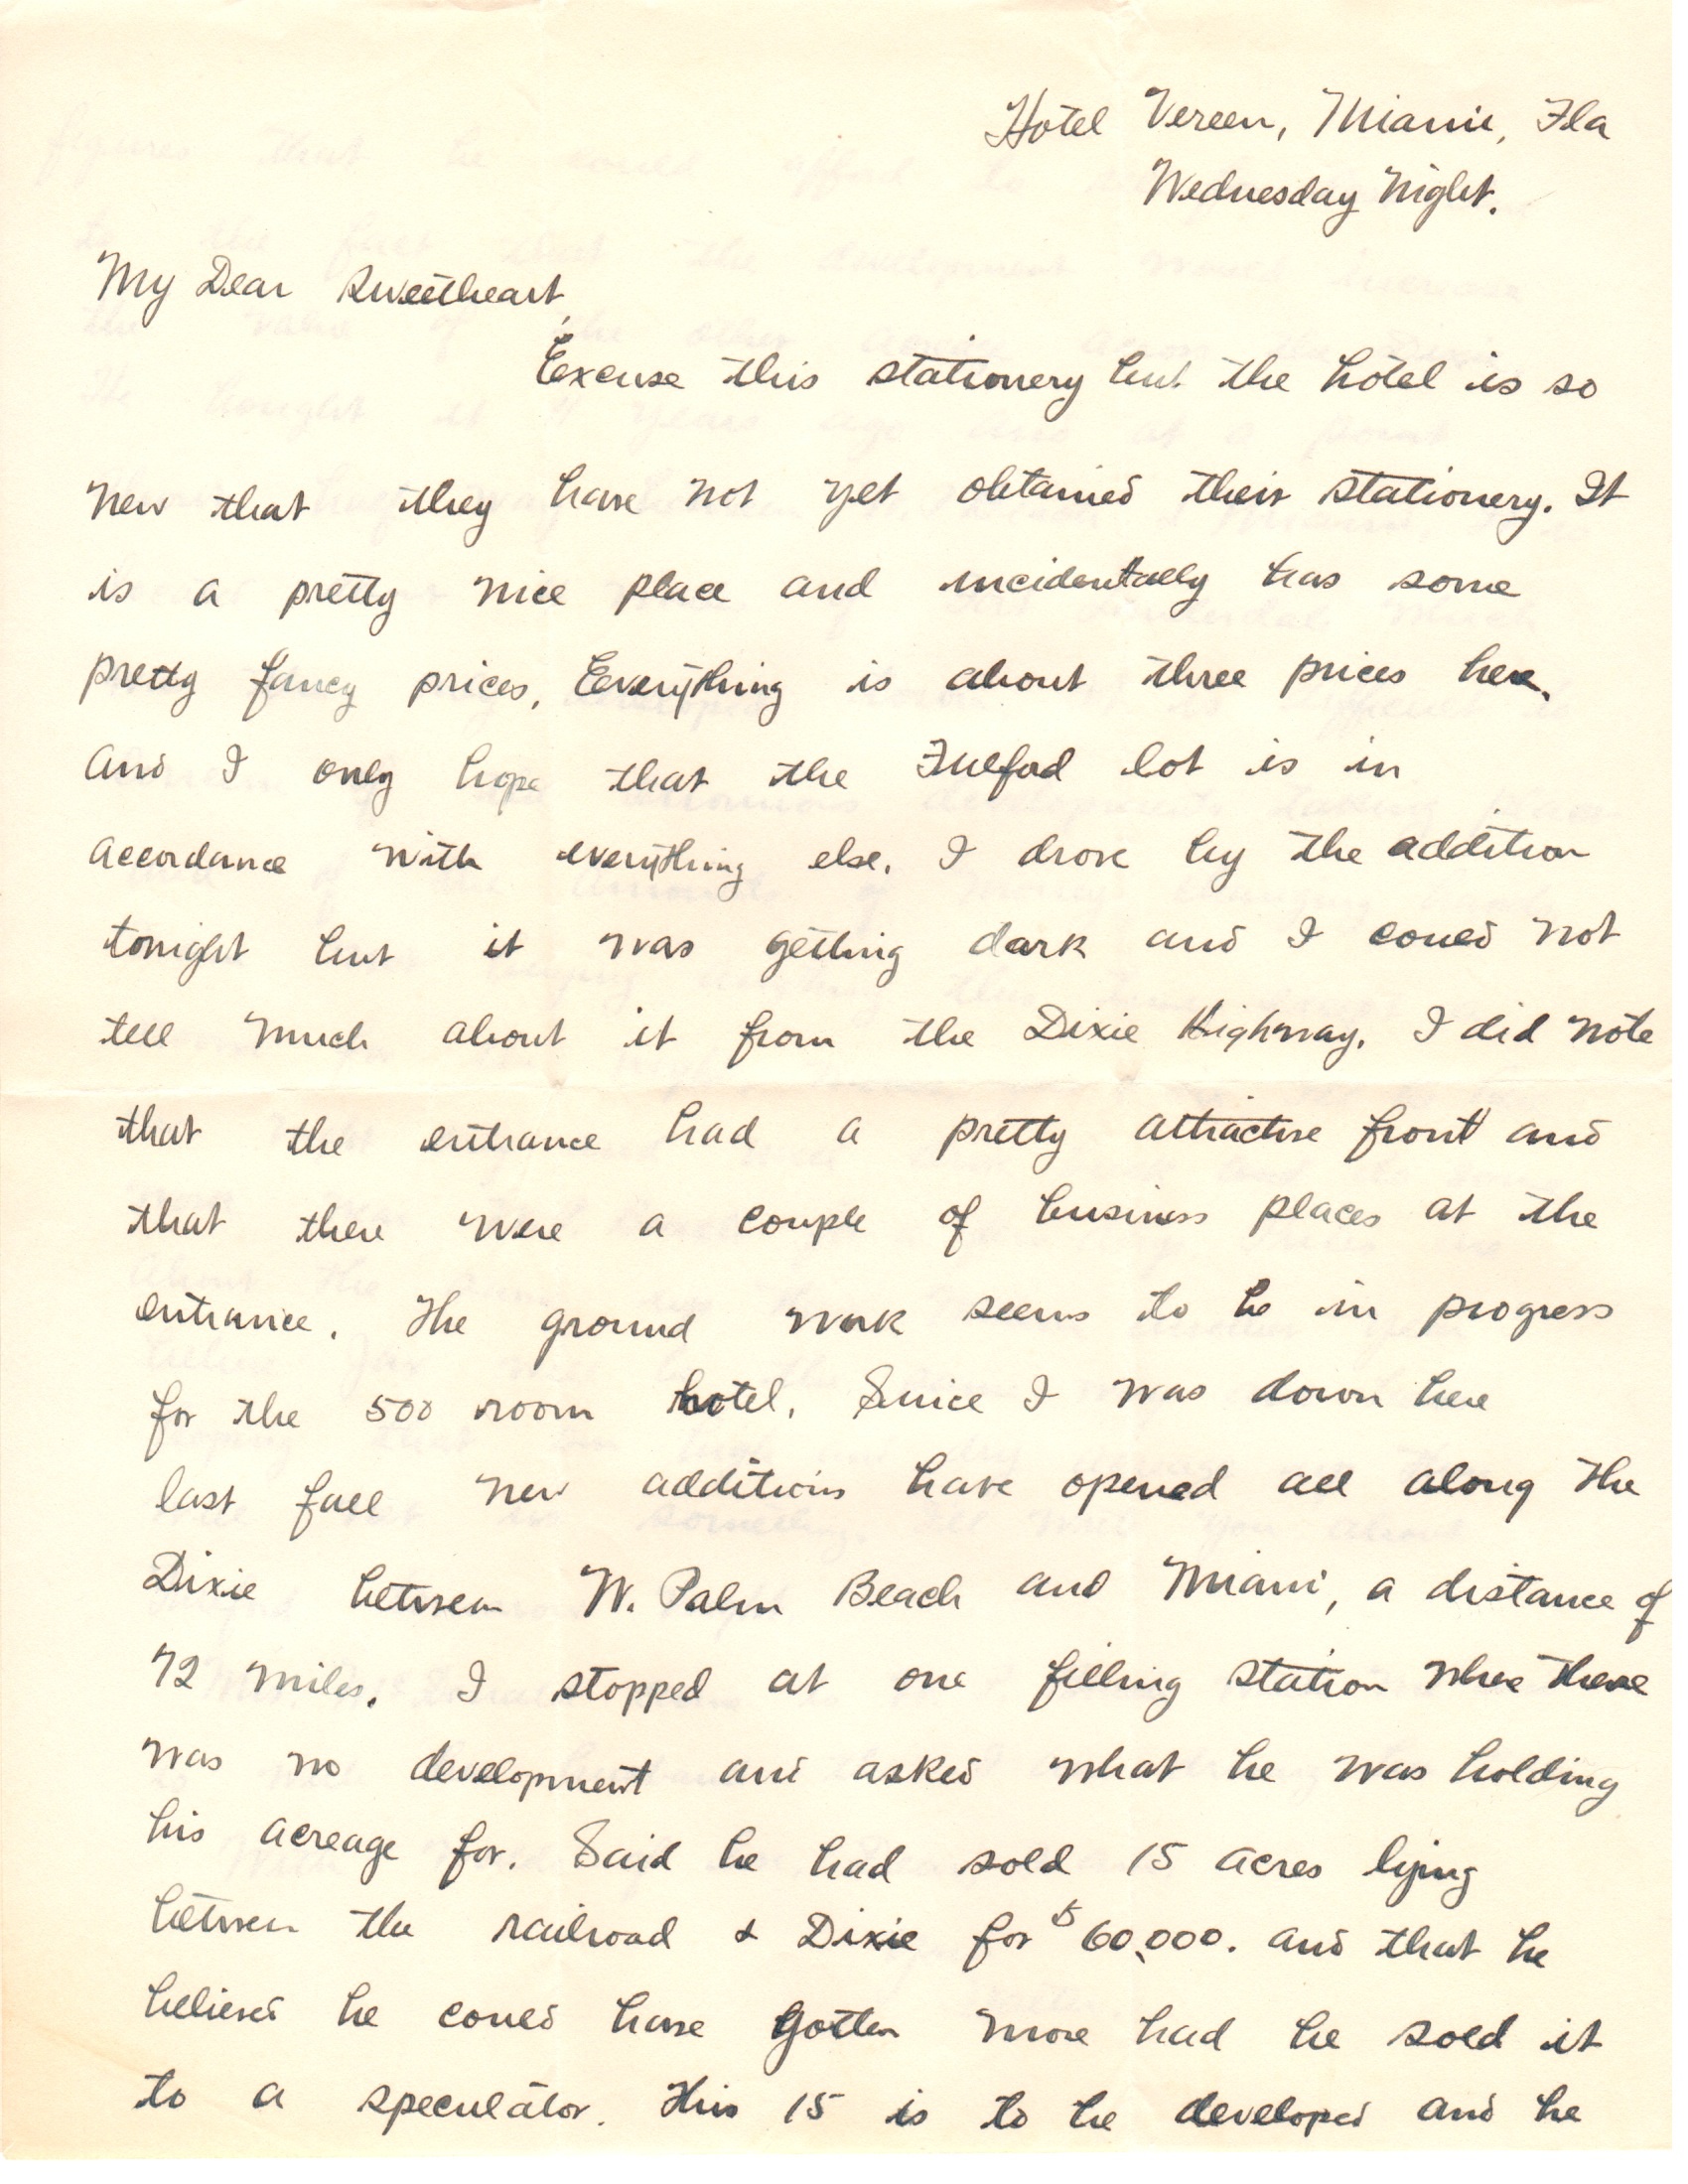 Hotel Vereen, Miami, Fla
Wednesday Night.
My Dear Sweetheart,
Excuse this stationery but the hotel is so
new that they have not yet obtained their stationery. It
is a pretty nice place and incidentally has some
pretty fancy prices. Everything is about three prices here.
and I only hope that the Fulford lot is in
accordance with everything else. I drove by the addition
tonight but it was getting dark and I could not
tell much about it from the Dixie Highway. I did note
that the entrance had a pretty attractive front and
that there were a couple of business places at the
entrance. The ground work seems to be in progress
for the 500 room hotel. Since I was down here
last fall new additions have opened all along the
Dixie between W. Palm Beach and Miami, a distance of
72 miles. I stopped at one filling station where there
was no development and asked what he was holding
his acreage for. Said he had sold 15 acres lying
between the railroad & Dixie for $60,000. and that he
believed he could have gotten more had he sold it
to a speculator. This 15 is to be developed and he